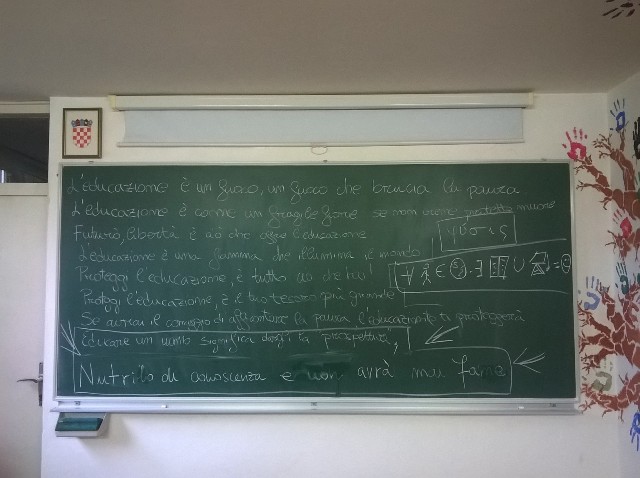 L'educazione è un fuoco, un fuoco che brucia la paura
L'educazione è come un fragile fiore se non viene protetto muore
Futuro, libertà è ciò che offre l'educazione
φύσις
L'educazione è una fiamma che illumina il mondo
Proteggi l'educazione, è tutto ciò che hai!
Proteggi l'educazione, è il tuo tesoro più grande
Se avrai il coraggio di affrontare la paura l'educazione ti proteggerà
Educare un uomo significa dargli la prospettiva,
Nutrilo di conoscenza e non avrà mai fame